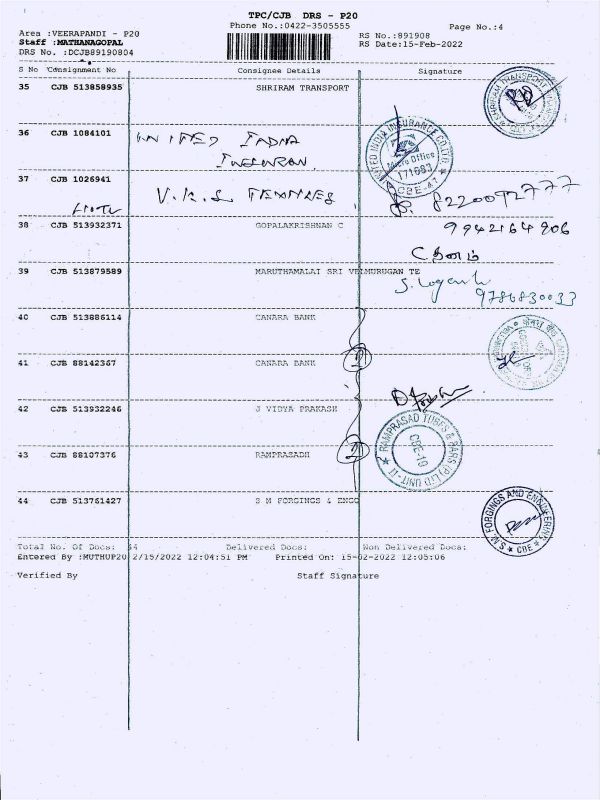 TPC/CJB DRS - P20
Phone No.:0422-3505555
Page No.:4
Area :VEERAPANDI - P20
RS No.:891908
Staff :MATHANAGOPAL
RS Date:15-Feb-2022
DRS No. :DCJB89190804
S No Consignment No Consignee Details Signature
35 CJB 513858935 SHRIRAM TRANSPORT
SHRIRAM TRANSPORT
36 CJB 1084101 UNITED INDIA
INSURAN.
UNITED INDIA INSURANCE CO.LTD.
Micro Office
171683
CBE-47
37 CJB 1026941 V.K.S TEXTILES 8220092777
38 CJB 513932371 GOPALAKRISHNAN C 9942164906
C தனம்
39 CJB 513879589 MARUTHAMALAI SRI VELMURUGAN TE S. Loganath
9786830033
40 CJB 513886114 CANARA BANK
41 CJB 88142367 CANARA BANK 2
42 CJB 513932246 J VIDYA PRAKASH
43 CJB 88107376 RAMPRASADH 2
RAMPRASAD TUBES & BARS (P) LTD UNIT-II
CBE-19
44 CJB 513761427 S M FORGINGS & ENGG
S.M. FORGINGS AND ENGINEERING
CBE
Total No. Of Docs: 44 Delivered Docs: Non Delivered Docs:
Entered By :MUTHUP20 2/15/2022 12:04:51 PM Printed On: 15-02-2022 12:05:06
Verified By Staff Signature